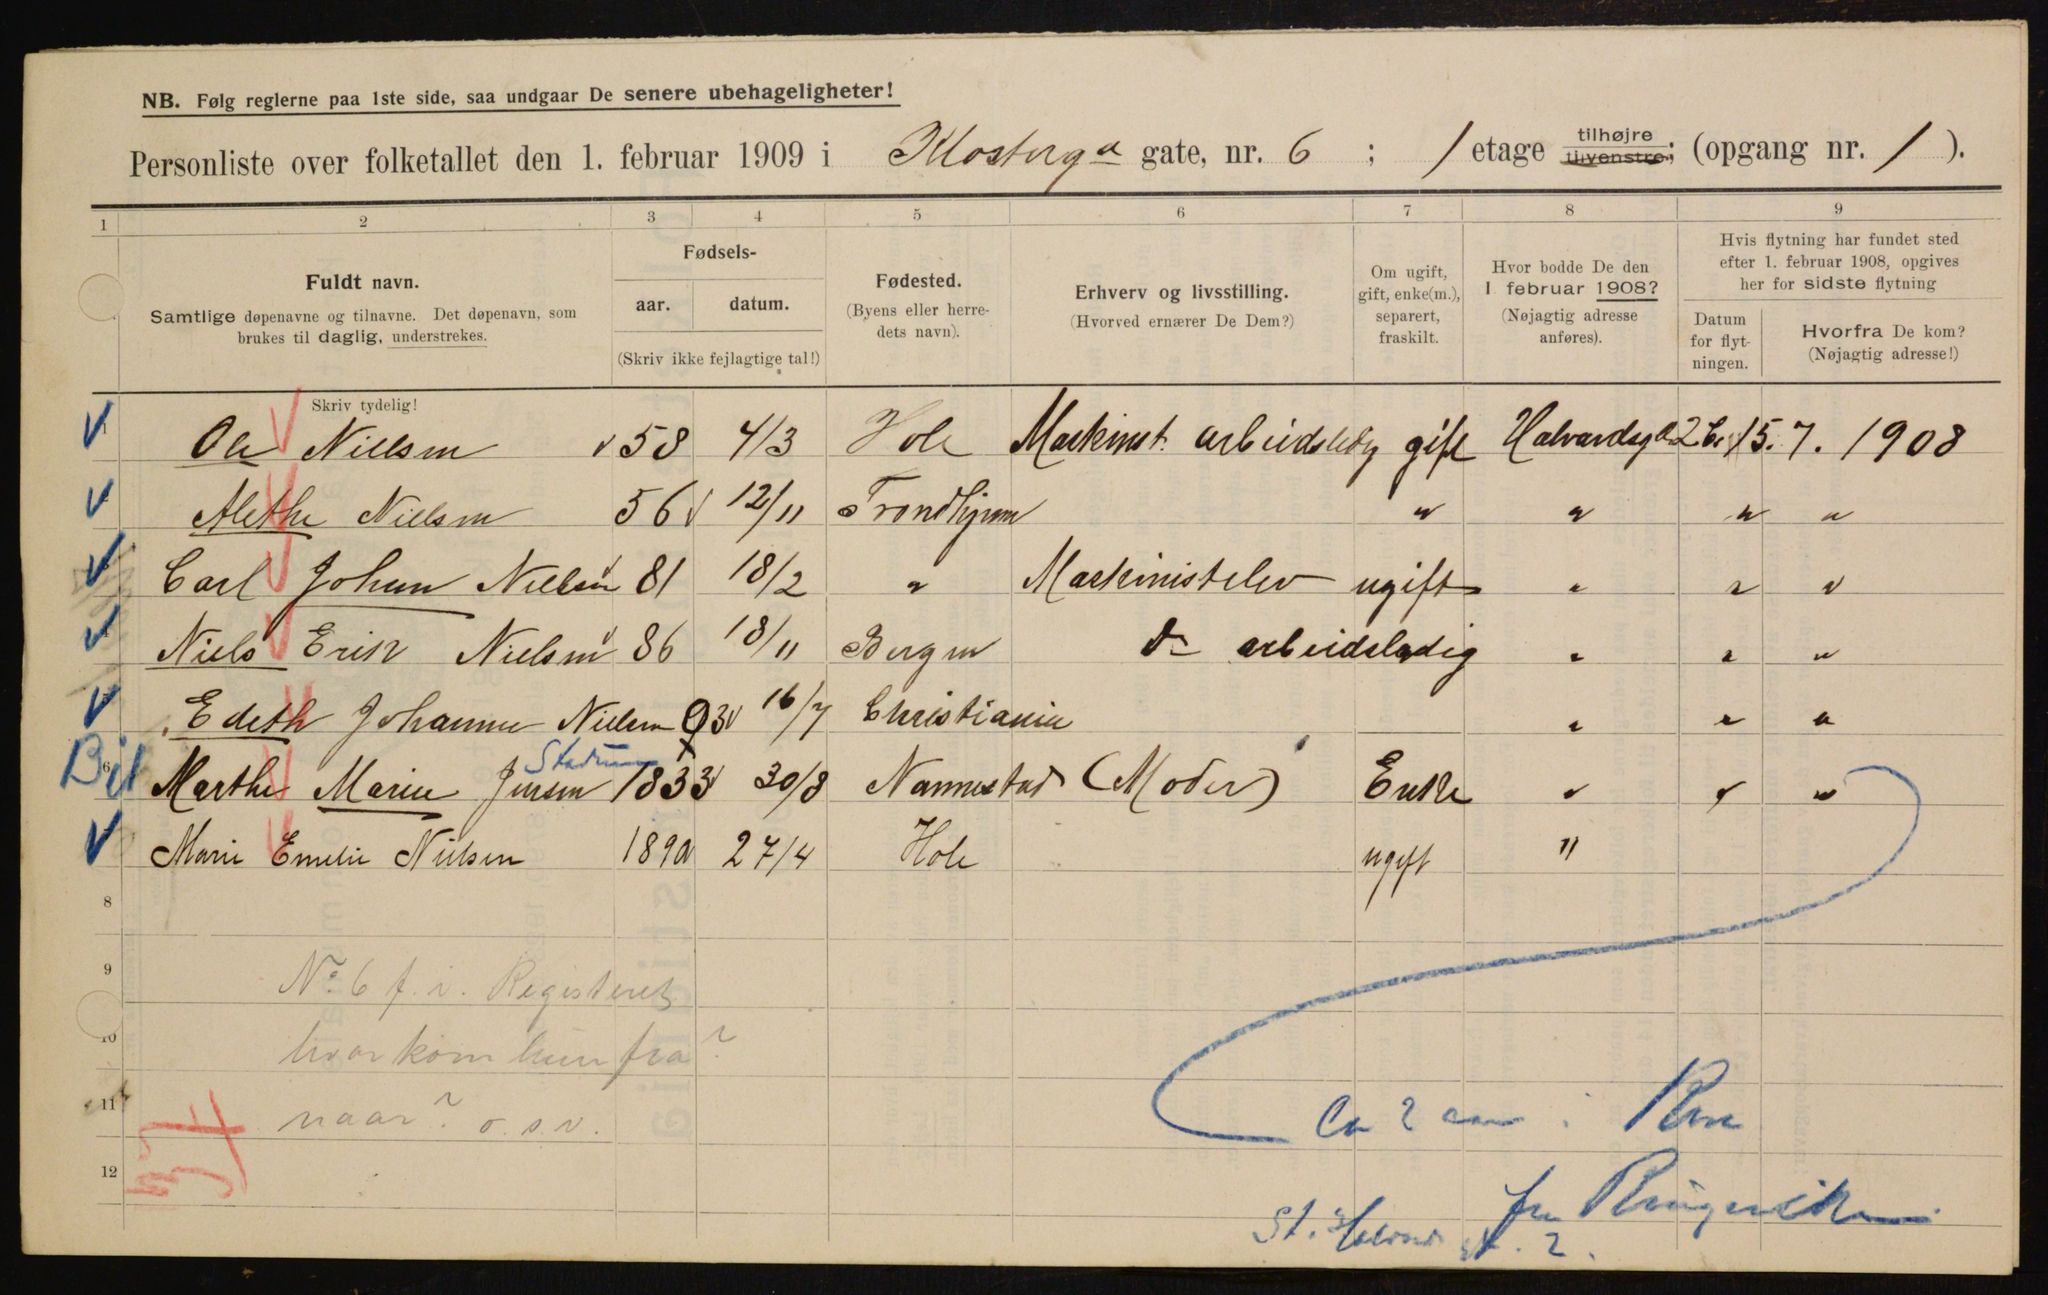 NB. Følg reglerne paa 1ste side, saa undgaar De senere ubehageligheter!
Personliste over folketallet den 1. februar 1909 i Klosterga gate, nr. 6 ; 1 etage tilhøjre tilvenstre; (opgang nr. 1 ).
1 2 3 4 5 6 7 8 9
Fuldt navn.
Samtlige døpenavne og tilnavne. Det døpenavn, som
brukes til daglig, understrekes.
Fødsels-
aar. datum.
(Skriv ikke fejlagtige tal!)
Fødested.
(Byens eller herre-
dets navn).
Erhverv og livsstilling.
(Hvorved ernærer De Dem?)
Om ugift,
gift, enke(m.),
separert,
fraskilt.
Hvor bodde De den
1 februar 1908?
(Nøjagtig adresse
anføres).
Hvis flytning har fundet sted
efter 1. februar 1908, opgives
her for sidste flytning
Datum
for flyt-
ningen.
Hvorfra De kom?
(Nøjagtig adresse!)
Skriv tydelig!
Ole Nielsen 58 4/3 Hole Maskinist arbeidsledig gift Halvardsgt 2 15.7. 1908
Alethe Nielsen 56 12/11 Trondhjem " " " "
Carl Johan Nielsen 81 18/2 " Maskinistelev ugift " " "
Niels Erik Nielsen 86 18/11 Bergen Do arbeidsledig " " "
Edeth Johanne Nielsen 93 16/7 Christiania " " "
Bil 6 Marthe Marie Jensen 1833 30/8 Nannestad (Moder) Enke " " "
Marie Emelie Nielsen 1890 27/4 Hole ugift "
8
9 No 6 f. i. Registeret
10 hvor kom hun fra?
11 naar? o.s.v.
Ca 2 aar i
12
fra Ringerike
St. Halvards gt. 2.